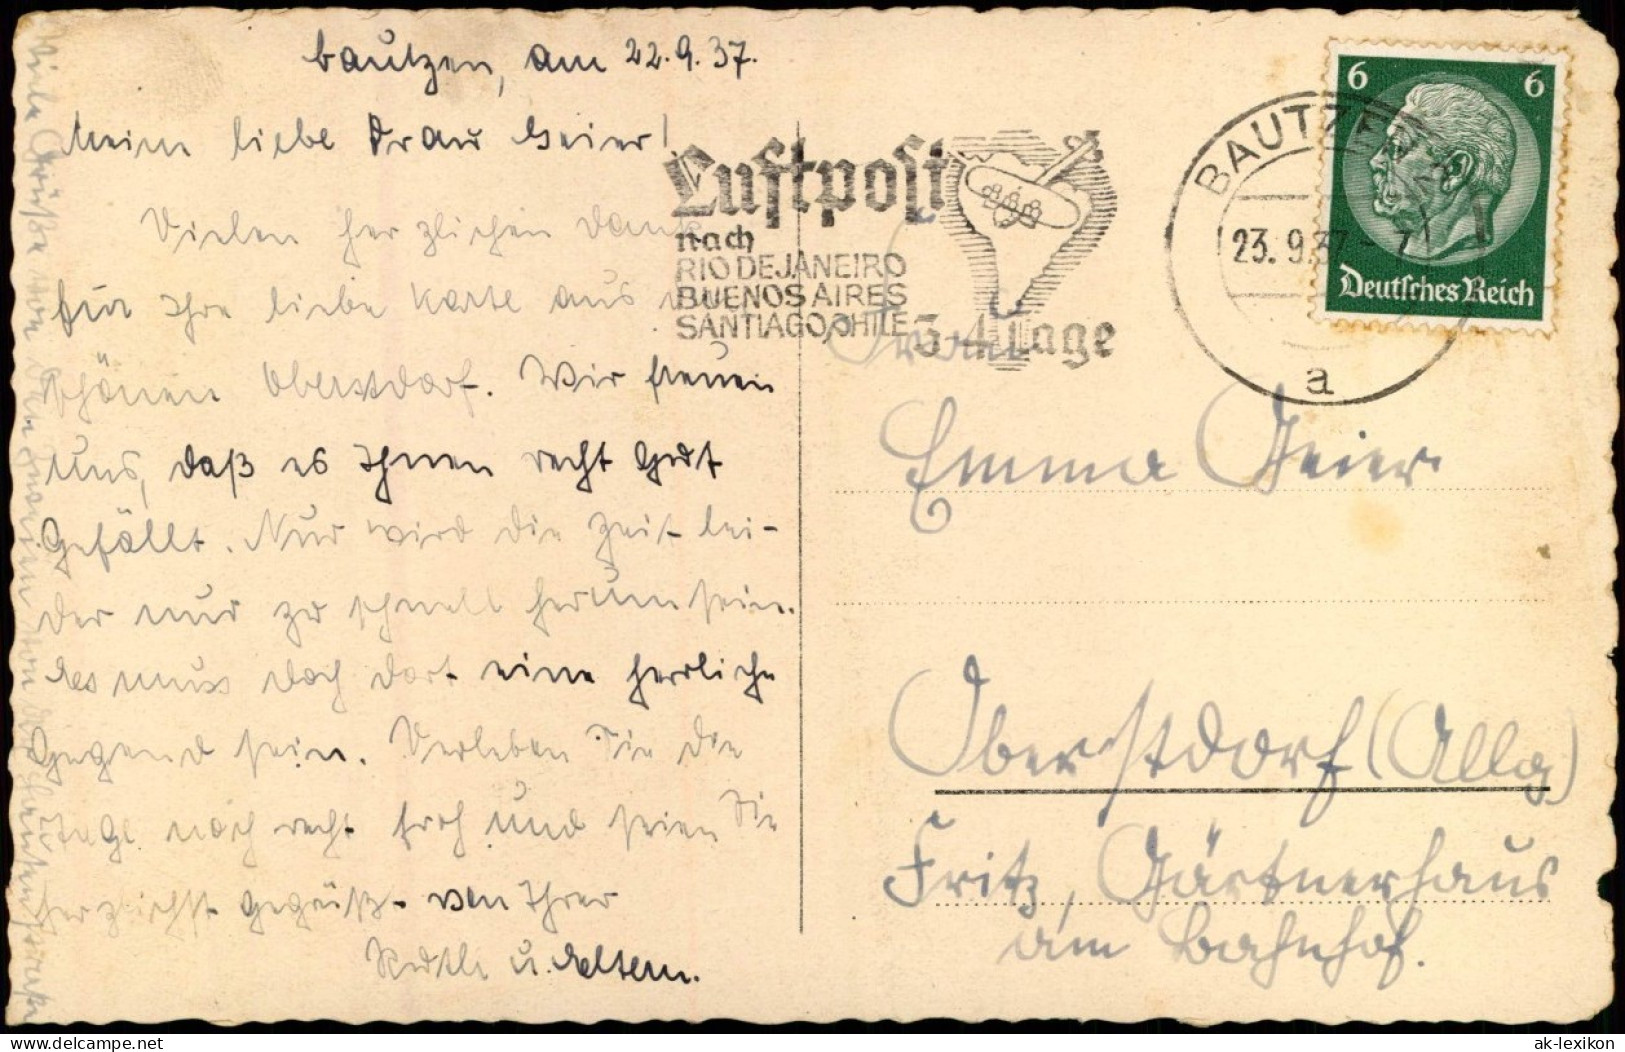 Bautzen, am 22.9.37.
Meine liebe Frau Geier!
Vielen herzlichen Dank
für Ihre liebe Karte aus
schönen Oberstdorf. Wir freuen
uns, daß es Ihnen recht gut
gefällt. Nur wird die Zeit lei-
der nur zu schnell herum sein.
Es muss doch dort eine herrliche
Gegend sein. Verleben Sie die
Tage noch recht froh und seien Sie
herzlichst gegrüßt von Ihrer
u. Eltern.
Viele Grüße von
Luftpost
nach
RIO DE JANEIRO
BUENOS AIRES
SANTIAGO, CHILE 3-4 Tage
BAUTZEN
23.9.37-7
a
6 6
Deutsches Reich
Frau
Emma Geier
Oberstdorf (Allg)
Fritz, Gärtnerhaus
am Bahnhof.
© ak-lexikon.com
ak-lexikon